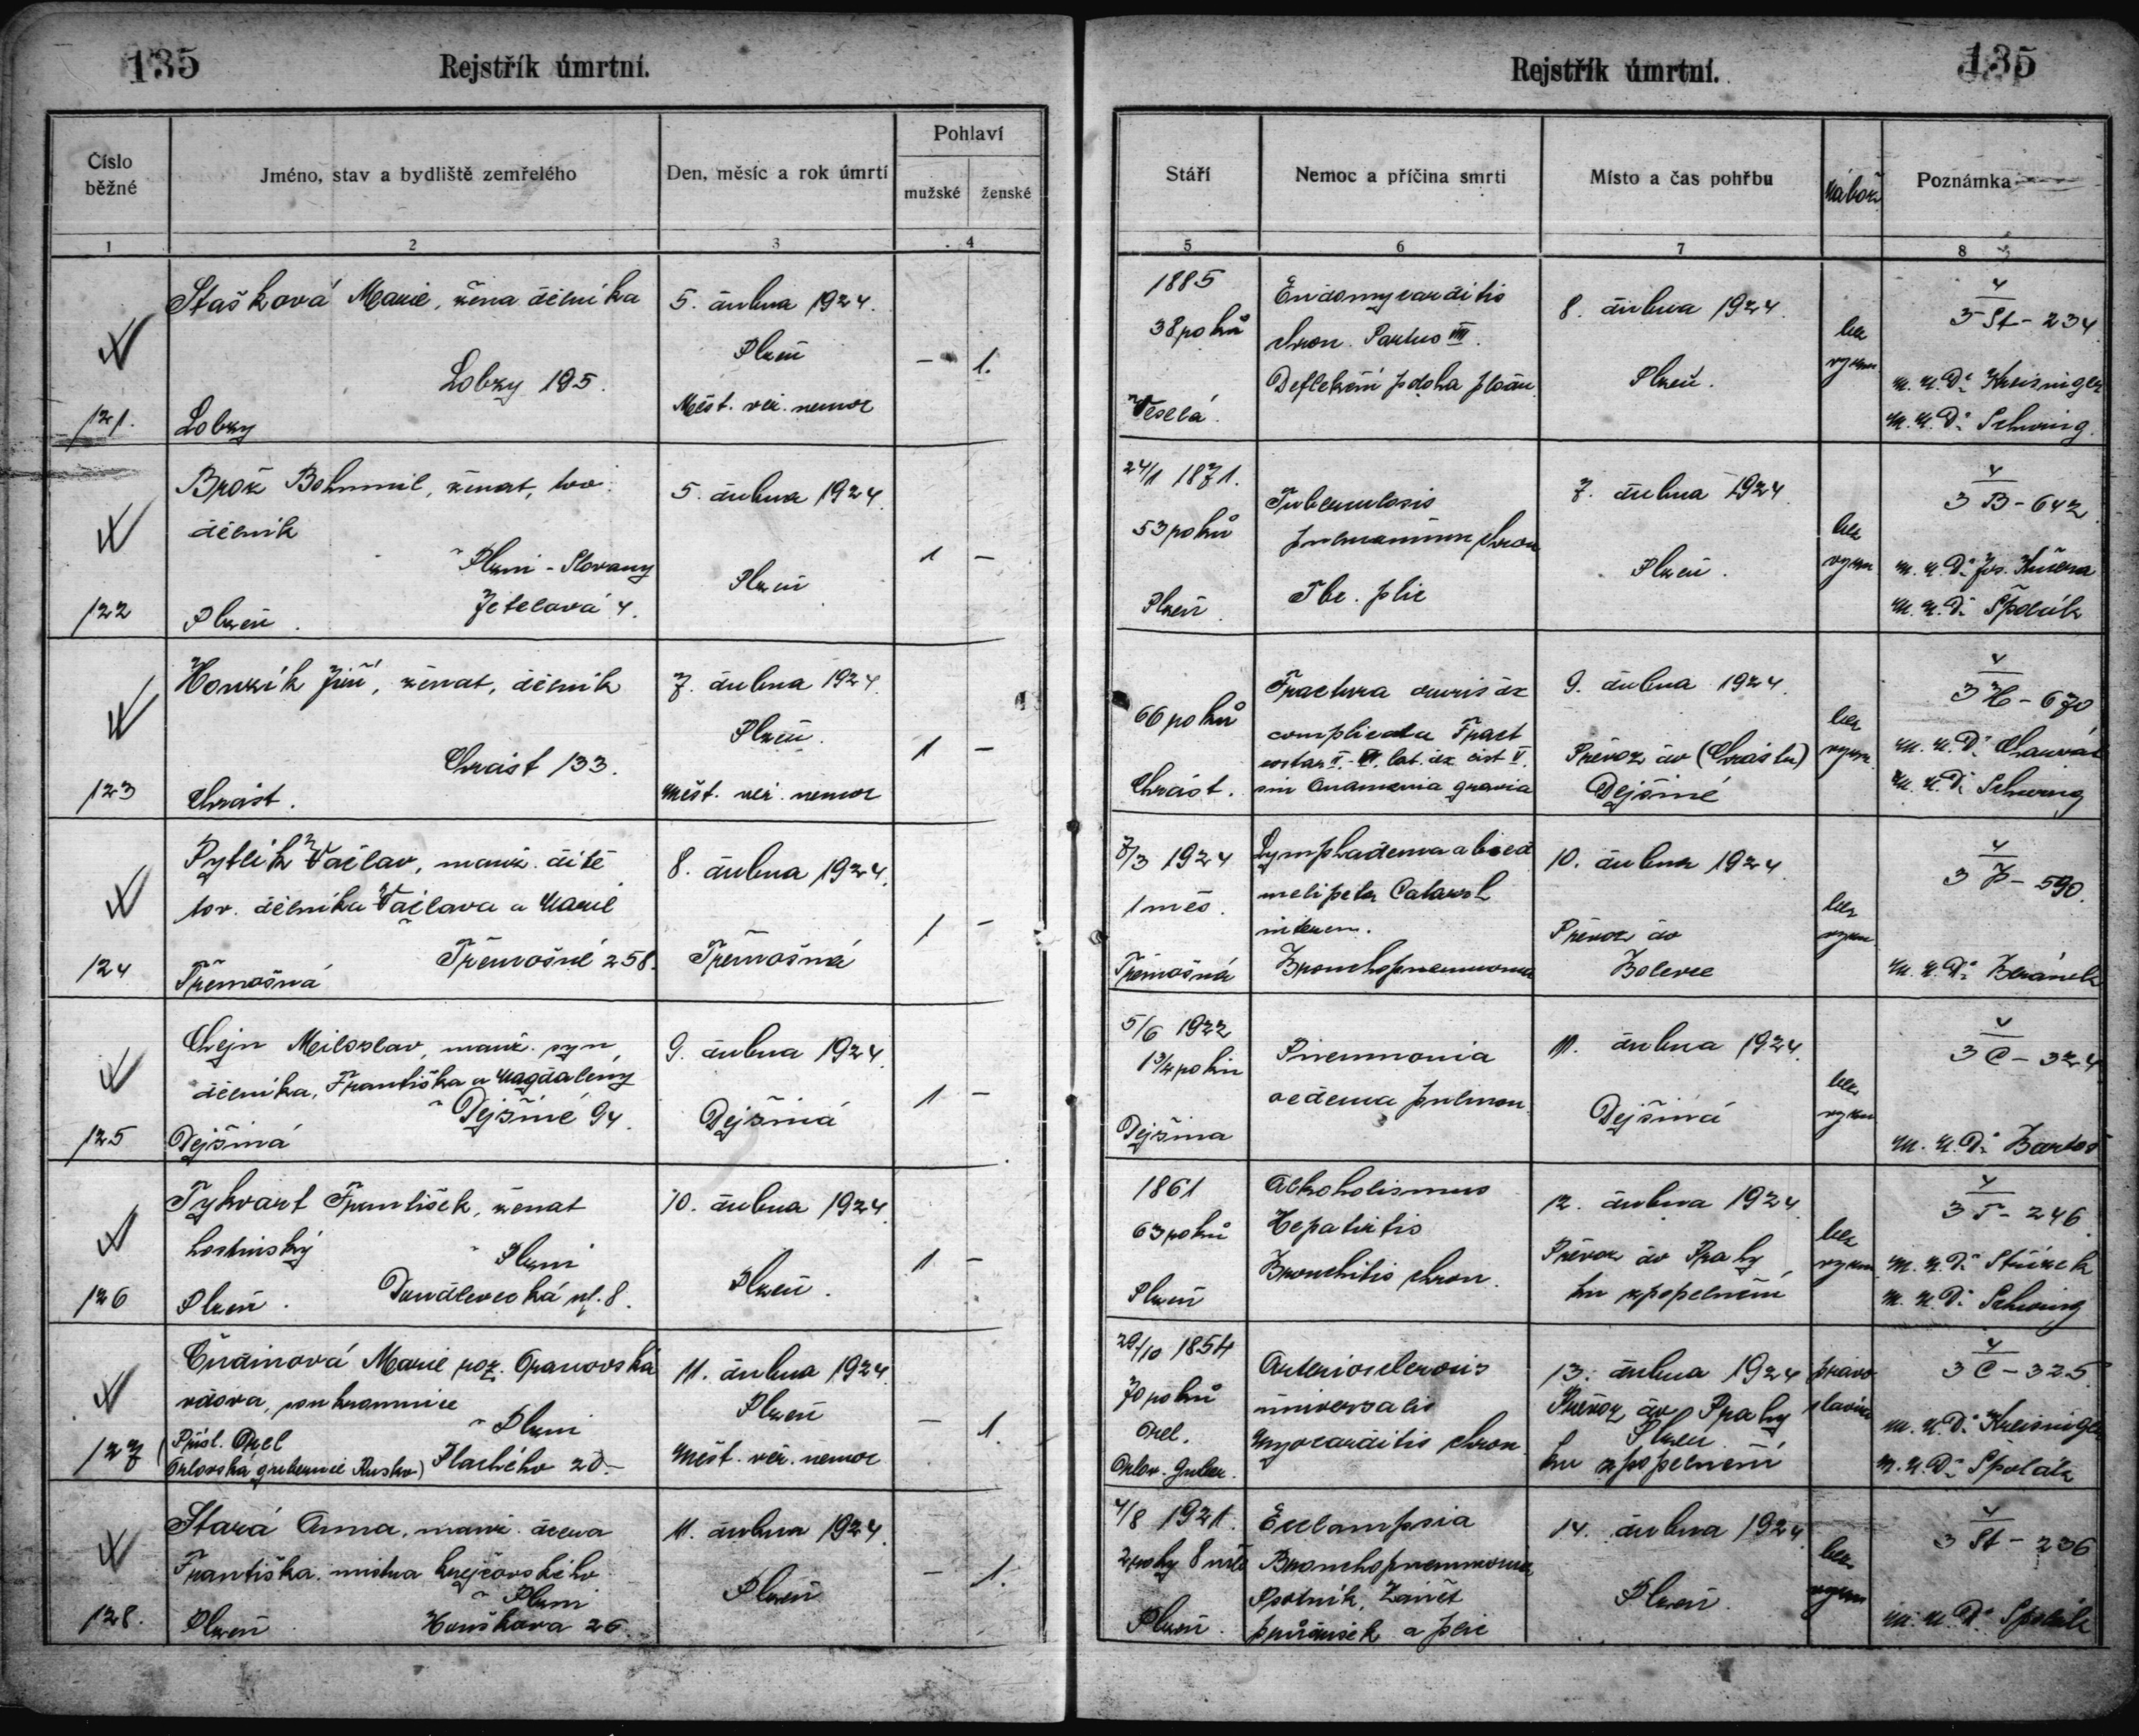 135
Rejstřík úmrtní.
Číslo běžné
Jméno, stav a bydliště zemřelého
Den, měsíc a rok úmrtí
Pohlaví
mužské
ženské
1
2
3
4
Stašková Marie, žena dělníka
5. dubna 1924.
Plzeň
- 1.
Lobzy 195.
Měst. veř. nemoc
121.
Lobzy
Brož Bohumil, ženat, tov.
5. dubna 1924.
dělník
v Plzni - Slovany
1 -
Plzeň
Jetelová 4.
122
Plzeň.
Honzík Jiří, ženat, dělník
7. dubna 1924.
Plzeň.
1 -
Chrást 133.
123
Chrást.
Měst. veř. nemoc
Pytlík Václav, manž. dítě
8. dubna 1924.
tov. dělníka Václava a Marie
1 -
v Třemošné 258.
Třemošná
124
Třemošná
Chejn Miloslav, manž. syn
9. dubna 1924.
dělníka, Františka a Magdaleny
v Dejšině 94.
1 -
Dejšiná
125
Dejšiná
Tykvart František, ženat
10. dubna 1924
hostinský
v Plzni
1 -
Doudlevecká ul. 8.
Plzeň.
126
Plzeň.
Čudinová Marie roz. Oranovská
11. dubna 1924.
vdova, soukromnice
Plzeň
v Plzni
- 1.
127
(Přísl. Orel
Orlovská gubernie Rusko)
Plachého 20.
Měst. veř. nemoc
Stará Anna, manž. dcera
11. dubna 1924.
Františka, mistra krejčovského
- 1.
v Plzni
Plzeň
128.
Plzeň
Houškova 26.
Rejstřík úmrtní.
135
Stáří
Nemoc a příčina smrti
Místo a čas pohřbu
Nábož.
Poznámka
5
6
7
8
1885
Endomycarditis
8. dubna 1924.
3 St - 234
38 roků
chron. Partus III.
bez
vyzn.
Plzeň.
M. U. Dr. Kreisinger
Veselá.
M. U. Dr. Schwing.
24/1 1871.
Tuberculosis
7. dubna 1924.
3 B - 642
53 roků
pulmonum chron.
bez
vyzn
Plzeň.
M. U. Dr. Jos. Kučera
Plzeň.
Tbc. plic
M. U. Dr. Špolák
Fractura cruris dx
9. dubna 1924.
3 H - 670
66 roků
complicata Fract
bez
vyzn.
Převoz do (Chrástu)
Chrást.
sin Anaemia gravis
Dejšině
M. U. Dr. Schwing
7/3 1924
10. dubna 1924.
3 P - 590.
1 měs.
bez
vyzn
Převoz do
Třemošná
Bronchopneumonia
Bolevce
M. U. Dr. Beránek
5/6 1922
1 3/4 roku
Pneumonia
11. dubna 1924.
3 C - 324
oedema pulmon.
bez
vyzn
Dejšina
Dejšiná
M. U. Dr. Bartoš
1861
Alkoholismus
12. dubna 1924.
3 T - 246.
63 roků
Hepatitis
bez
vyzn.
Převoz do Prahy
Bronchitis chron.
ku zpopelnění
Plzeň
M. U. Dr. Schwing
29/10 1854
Arteriosclerosis
13. dubna 1924
pravo
3 C - 325.
70 roků
universalis
Převoz do Prahy
slavná
Orel.
Plzeň
M. U. Dr. Kreisinger
Orlov. Guber.
Myocarditis chron.
ku zpopelnění
M. U. Dr. Špolák
4/8 1921.
Eclampsia
14. dubna 1924.
3 St - 236
2 roky 8 měs
Bronchopneumonia
bez
vyzn
Psotník, Zánět
Plzeň.
Plzeň.
průdušek a plic
M. U. Dr. Špolák